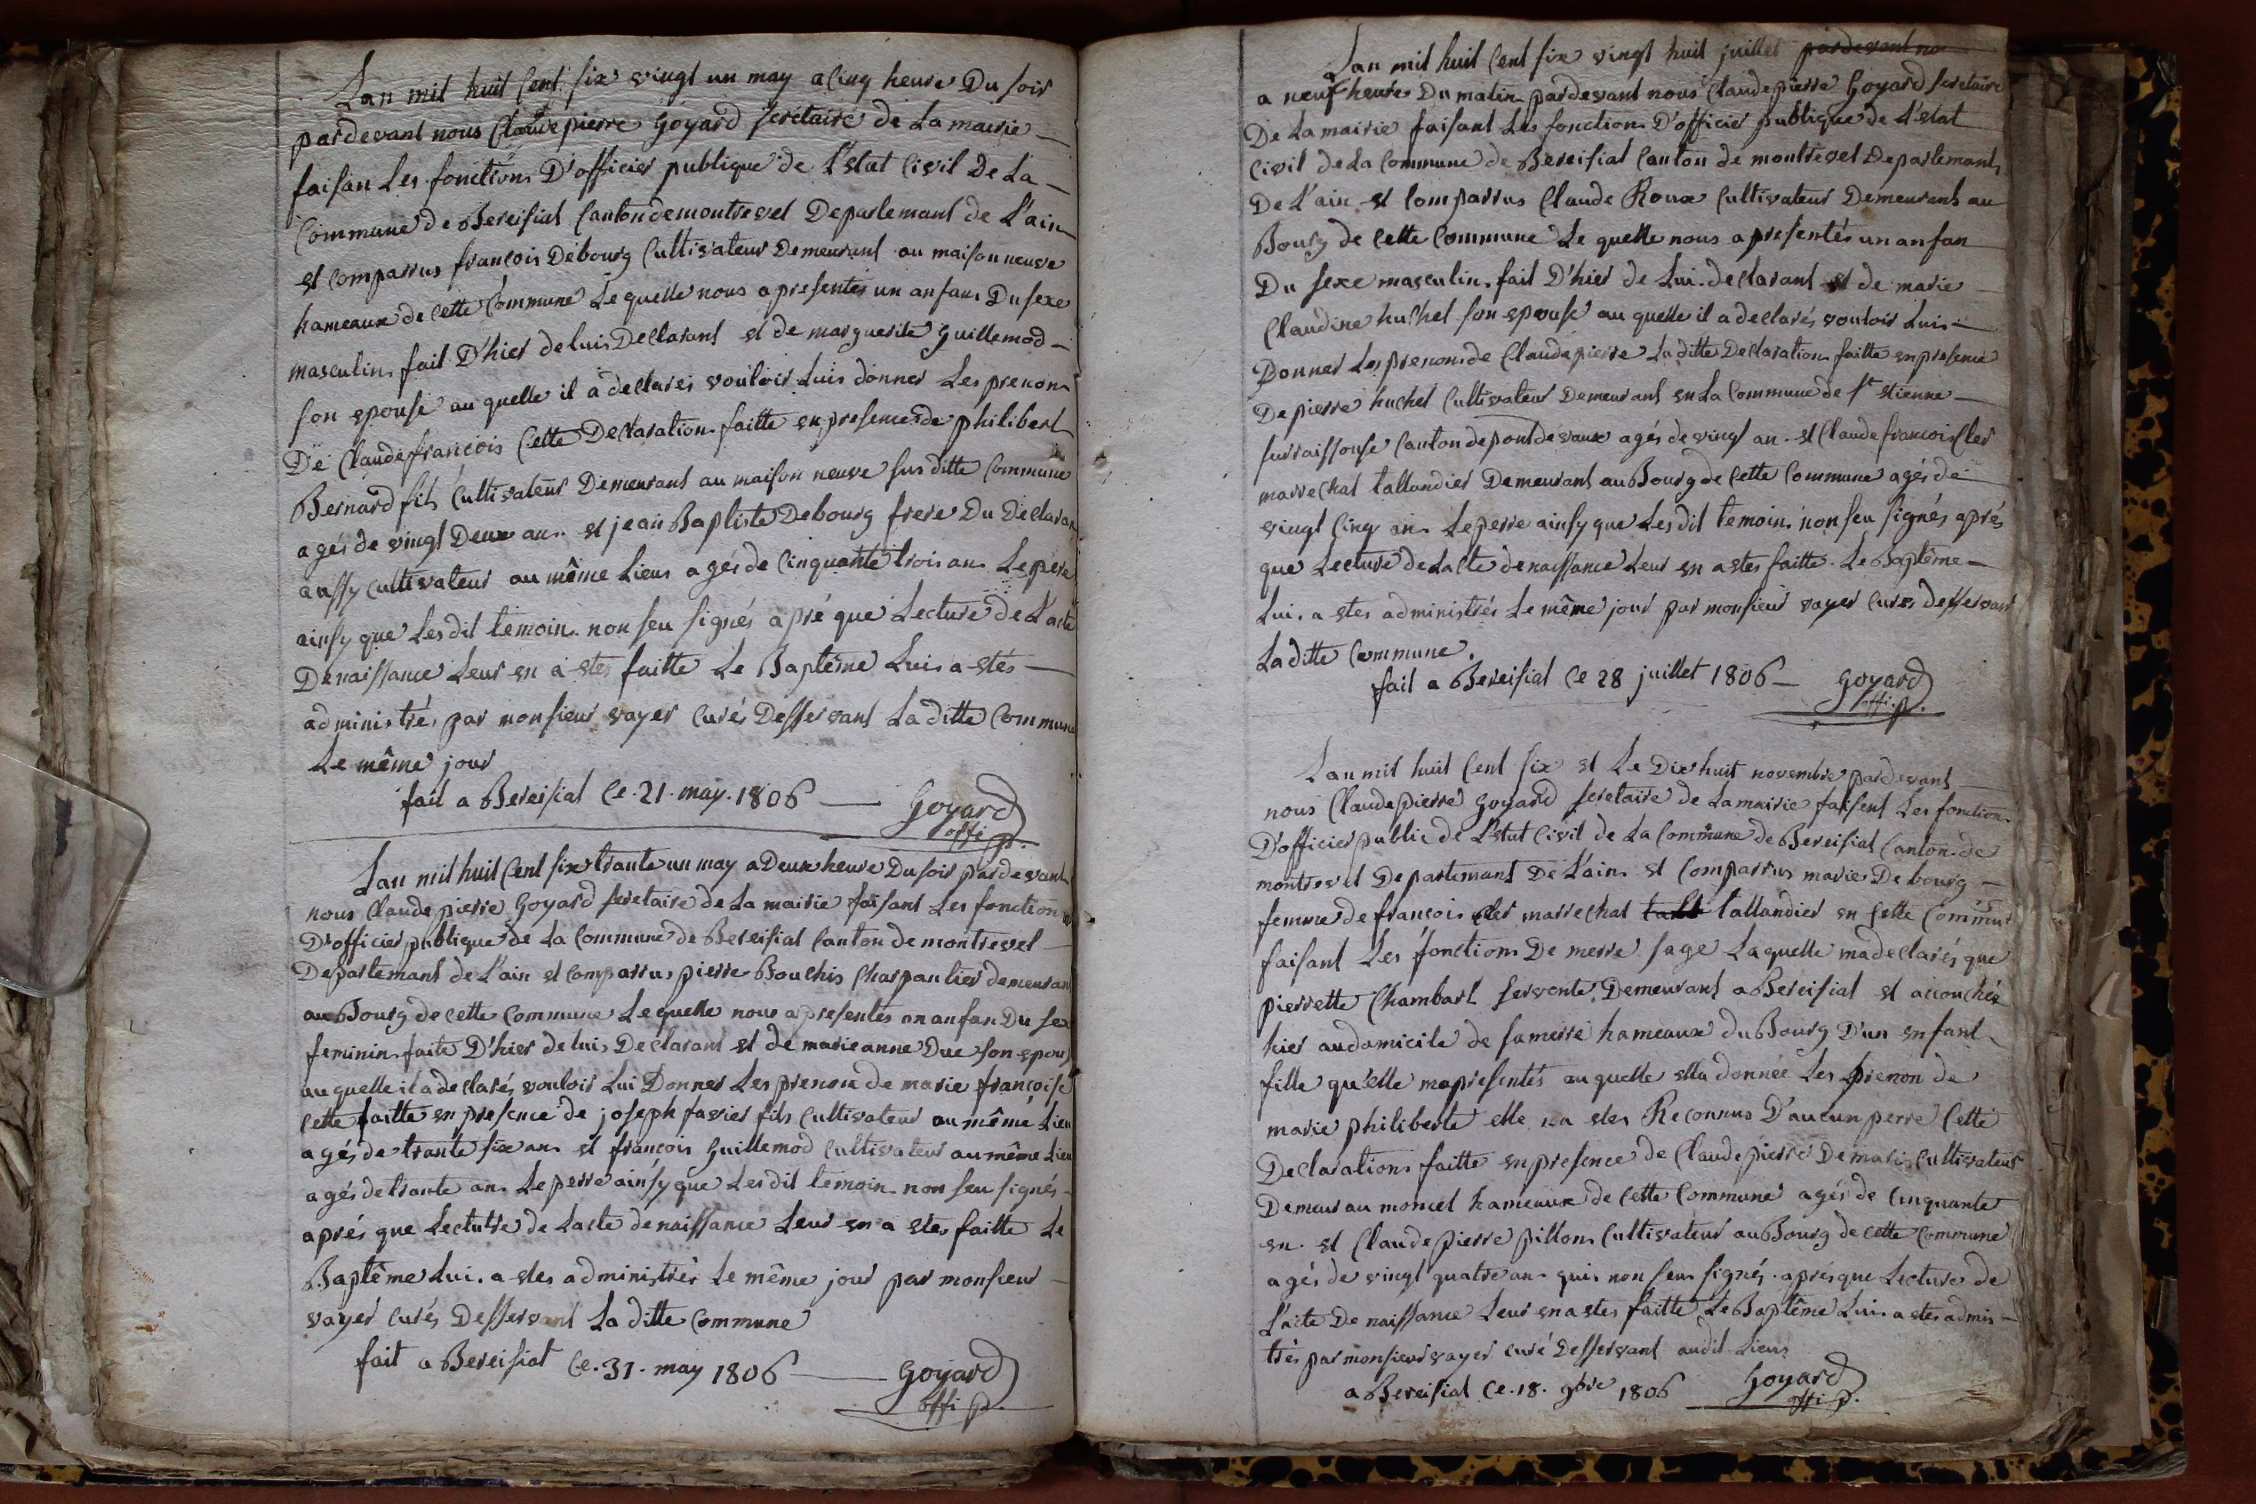 Lan mil huit Cent six vingt un may a Cinq heure Du soir
pardevant nous Claude pierre Goyard secretaire de La mairie
faisan Les fonctions D'officier publique de L'etat Civil De La
Commune de Bereisiat Canton de montrevel Departemant de L'ain
et comparrus francois Debourg Cultivateur Demeurant au maison neuve
hameaux de cette Commune Le quelle nous a presentés un anfans Du sexe
masculin fait D'hier de luis Declarant et de marguerite Guillemod
son epouse au quelle il a declarés vouloir Luis donner Les prenom
De Claude francois Cette Declaration faitte en presence de philibert
Bernard fils Cultivateur Demeurant au maison neuve sus ditte Commune
agés de vingt Deux ans et jean Baptiste Debourg frere Du Declaran
aussy Cultivateur au même Lieus agés de Cinquante trois ans Le pere
ainsy que Les dit temoin non seu signés apré que Lecture de L'acte
De naissance Leur en a etes faitte Le Baptême Luis a etés
administrés par monsieur vayer curés Desservant La ditte Commune
Le même jour
fait a Bereisiat Ce. 21. may. 1806 Goyard
offi p.
Lan mil huit Cent six trante un may a Deux heure Du soir pardevant
nous Claude pierre Goyard secretaire de La mairie faisant Les fonction
D'officier publique de La Commune de Bereisiat Canton de montrevel
Departemant de L'ain et comparrus pierre Bouchis Charpantier demeuran
au Bourg de cette Commune Le quelle nous a presentés un anfan Du sex
feminin faite D'hier de luis Declarant et de marie anne Duc son epous
au quelle il a declarés vouloir Lui Donner Les prenom de marie françoise
Cette faitte en presence de joseph favier fils Cultivateur au même Lieu
agés de trante six ans et françois Guillemod Cultivateur au même Lieu
agés de trante ans Le perre ainsy que Les dit temoin non seu signés
aprés que Lectutre de Lacte de naissance Leur en a etes faitte Le
Baptême Lui. a etes administrés Le même jour par monsieur
vayer Curés Desservant La ditte Commune
fait a Bereisiat Ce. 31. may 1806 Goyard
offi p.
Lan mil huit Cent six vingt huit juillet pardevant no
a neuf heures Du matin pardevant nous Claude pierre Goyard secretaire
De La mairie faisant Les fonction D'officier publique de L'etat
Civil de La Commune de Bereisiat Canton de montrevel Departemant
De L'ain et Comparrus Claude Roux Cultivateur Demeurant au
Bourg de cette Commune Le quelle nous a presentés un anfan
Du sexe masculin fait D'hier de Lui declarant et de marie
Claudine huchet son epouse au quelle il a declarés vouloir Luis
Donner Les prenom de Claude pierre La ditte Declaration faitte en presence
De pierre huchet Cultivateur Demeurant en La Commune de St etienne
surraissouse Canton de pont de vaux agés de vingt an et Claude francois Cler
marrechal tallandier Demeurant au Bourg de Cette Commune agés de
vingt Cinq ans Le perre ainsy que Les dit temoins non seu signés aprés
que Lecture de Lacte de naissance Leur en a etes faitte. Le Baptême
Lui. a etes administrés Le même jour par monsieur vayer Cures desservant
La ditte Commune.
fait a Bereisiat Ce 28 juillet 1806 Goyard
offi. p.
Lan mil huit Cent six et Le Dix huit novembre pardevant
nous Claude pierre Goyard secretaire de La mairie faisent Les fonction
D'officier public de L'etat Civil de La Commune de Bereisiat Canton de
montrevel Departemant De L'ain et Comparrus marie Debourg
femme de francois Cler marrechal talt tallandier en Cette Commune
faisant Les fonctions De merre sage Laquelle ma declarés que
pierrette Chambart servente Demeurant a Bereisiat et accouchée
hier au domicile de sa merre hameaux du Bourg D'un enfant
fille qu'elle ma presentés au quelle ella donnée Les prenon de
marie philiberte elle na etes Reconnus D'aucun perre Cette
Declarations faitte en presence de Claude pierre Demaris Cultivateur
Demeur au moncel hameaux de cette Commune agés de Cinquante
en. et Claude pierre pillon Cultivateur au Bourg de cette Commune
agés de vingt quatre ans quis non seu signés. aprés que Lecture de
L'aite De naissance Leur en a etes faitte Le Baptême Luis a etes admis
trés par monsieur vayer curé Desservant audit Lieus
a Bereisiat Ce. 18. 9bre 1806 Goyard
offi p.